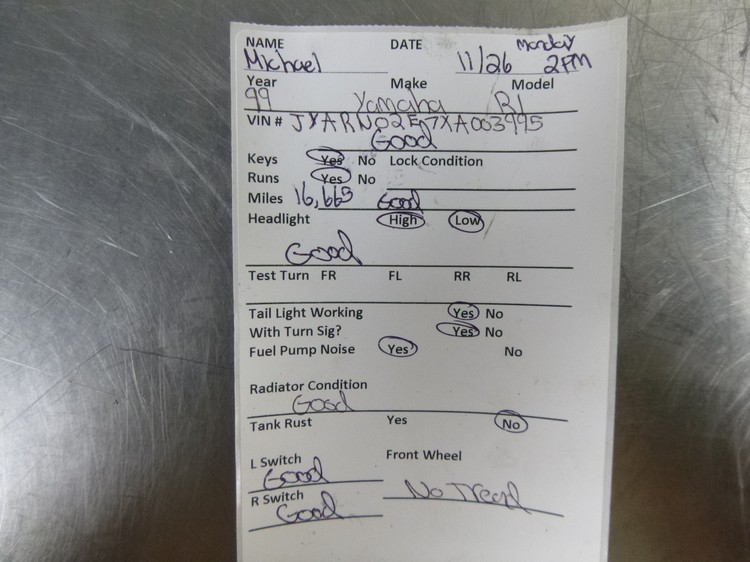 NAME DATE Monday
Michael 11/26 2PM
Year Make Model
99 Yamaha R1
VIN # JYARN02E7XA003995
Good
Keys Yes No Lock Condition
Runs Yes No
Miles 16,665 Good
Headlight High Low
Good
Test Turn FR FL RR RL
Tail Light Working Yes No
With Turn Sig? Yes No
Fuel Pump Noise Yes No
Radiator Condition
Good
Tank Rust Yes No
L Switch Front Wheel
Good
R Switch No Tread
Good